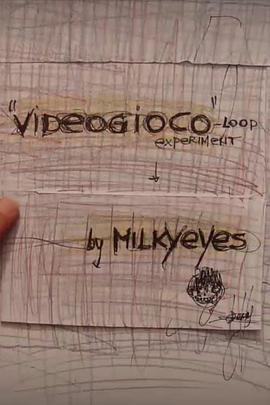 "VIDEOGIOCO" - LOOP
EXPERIMENT
by MILKYeyes